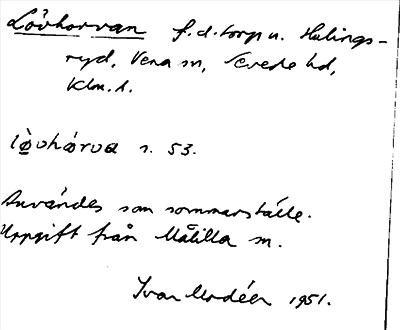 Lövhorvan f.d. torp u. Hulings-
ryd, Vena sn, Sevede hd,
Klm. l.
lòvhórva s. 53.
Användes som sommarställe.
Uppgift från Målilla sn.
Ivar Modéer 1951.